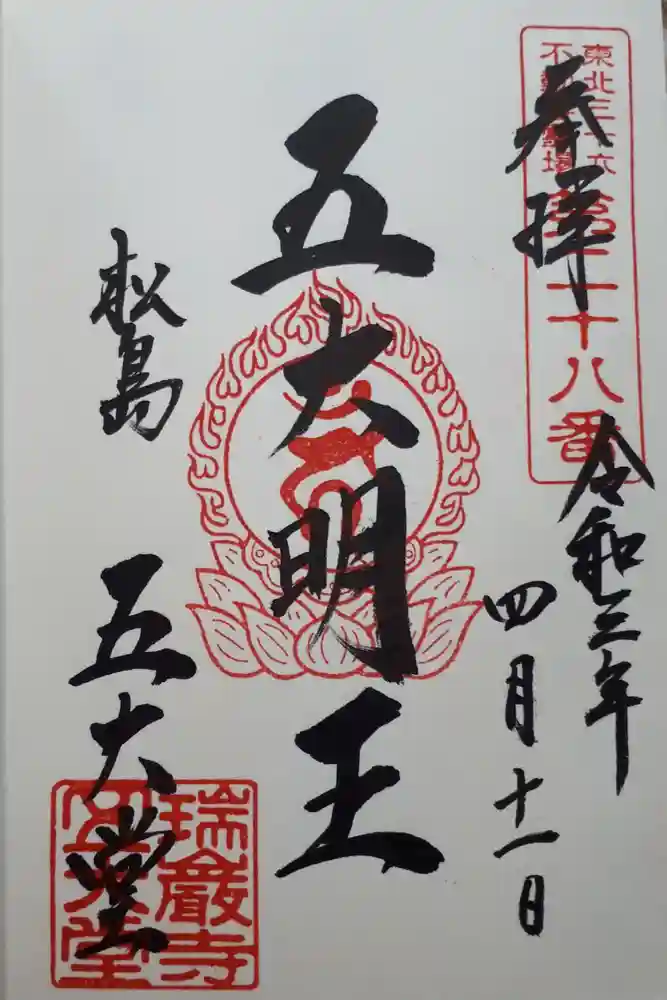 東北三十六
不動尊霊場
第二十八番
奉拝
令和三年
四月十一日
五大明王
松島
五大堂
瑞巌寺
五大堂